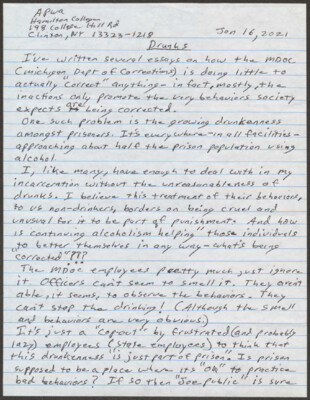 APWA
Hamilton College
198 College Hill Rd
Clinton, NY 13323-1218
Jan 16, 2021
Drunks
I've written several essays on how the MDOC
(Michigan Dept of Corrections) is doing little to
actually correct anything - in fact, mostly, the
inactions only promote the very behaviors society
expects are being corrected.
One such problem is the growing drunkenness
amongst prisoners. It's everywhere - in all facilities -
approaching about half the prison population using
alcohol.
I, like many, have enough to deal with in my
incarceration without the unreasonableness of
drunks. I believe this treatment of their behaviors,
to us non-drinkers, borders on being cruel and
unusual for it to be part of punishment. And how
is continuing alcoholism "helping" those individuals
to better themselves in any way - what's being
"corrected"???
The MDOC employees pretty much just ignore
it. Officers can't seem to smell it. They aren't
able, it seems, to observe the behaviors. They
can't stop the drinking! (Although the smell
and behaviors are very obvious)
It's just a "copout" by frustrated (and probably
lazy) employees (state employees) to think that
this drunkeness is "just part of prison". Is prison
supposed to be a place where it's "OK" to practice
bad behaviors? If so then "Joe public" is sure